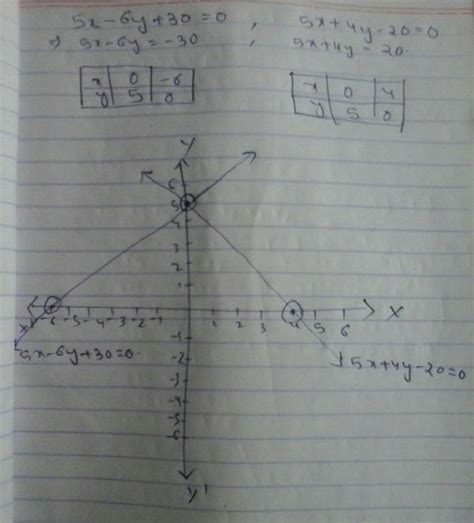 5x-6y+30=0 , 5x+4y-20=0
⇒ 5x-6y=-30 , 5x+4y=20.
x 0 -6
y 5 0
x 0 4
y 5 0
Y
6
5
4
3
2
1
X' -6 -5 -4 -3 -2 -1 1 2 3 4 5 6 X
-1
-2
-3
-4
-5
-6
5x-6y+30=0.
5x+4y-20=0
Y'